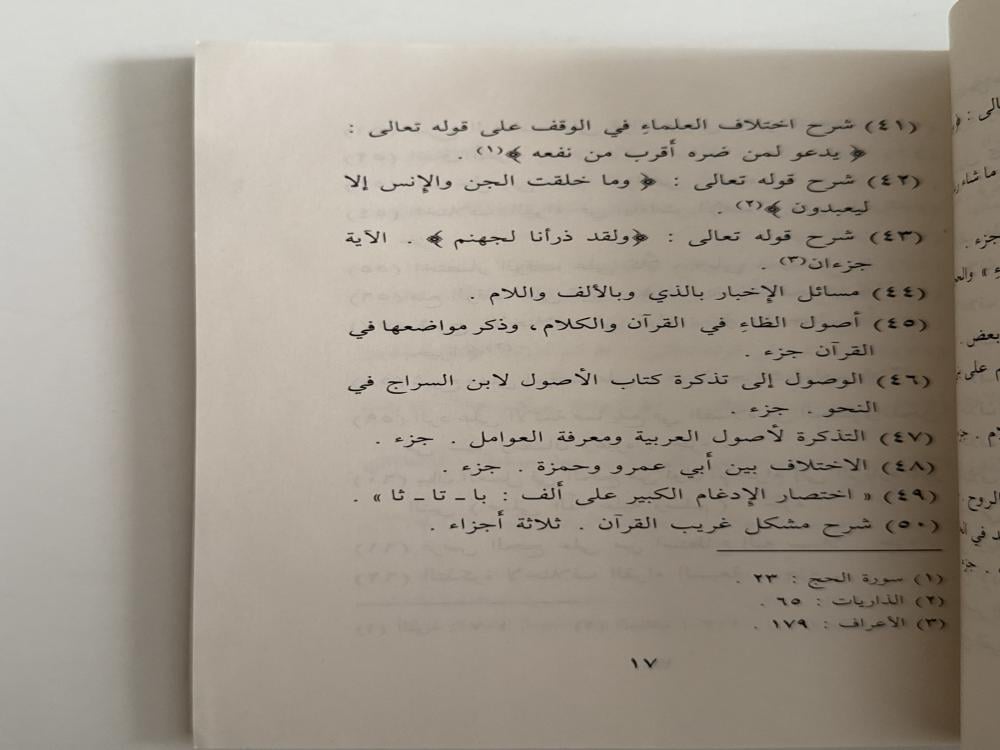 (٤١) شرح اختلاف العلماءِ في الوقف على قوله تعالى :
﴿ يدعو لمن ضره أقرب من نفعه ﴾(١) .
(٤٢) شرح قوله تعالى : ﴿ وما خلقت الجن والإنس إلا
ليعبدون ﴾(٢) .
(٤٣) شرح قوله تعالى : ﴿ولقد ذرأنا لجهنم ﴾ . الآية
جزءان(٣) .
(٤٤) مسائل الإخبار بالذي وبالألف واللام .
(٤٥) أصول الظاءِ في القرآن والكلام ، وذكر مواضعها في
القرآن جزء .
(٤٦) الوصول إلى تذكرة كتاب الأصول لابن السراج في
النحو . جزء .
(٤٧) التذكرة لأصول العربية ومعرفة العوامل . جزء .
(٤٨) الاختلاف بين أبي عمرو وحمزة . جزء .
(٤٩) « اختصار الإدغام الكبير على ألف : با ـ تا ـ ثا » .
(٥٠) شرح مشكل غريب القرآن . ثلاثة أجزاء .
(١) سورة الحج : ٢٣ .
(٢) الذاريات : ٦٥ .
(٣) الأعراف : ١٧٩ .
١٧